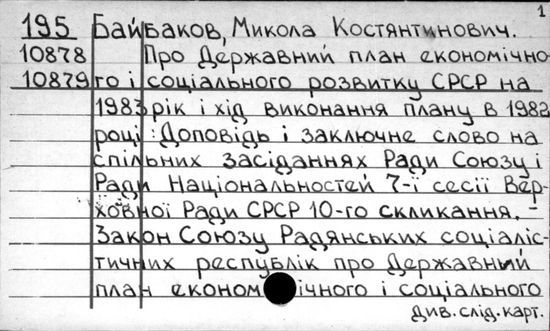 1
195 Байбаков, Микола Костянтинович.
10878 Про Державний план економічно-
10879 го і соціального розвитку СРСР на
1983 рік і хід виконання плану в 1982
році: Доповідь і заключне слово на
спільних засіданнях Ради Союзу і
Ради Національностей 7-ї сесії Вер-
ховної Ради СРСР 10-го скликання. –
Закон Союзу Радянських соціаліс-
тичних республік про Державний
план економічного і соціального
див. слід. карт.